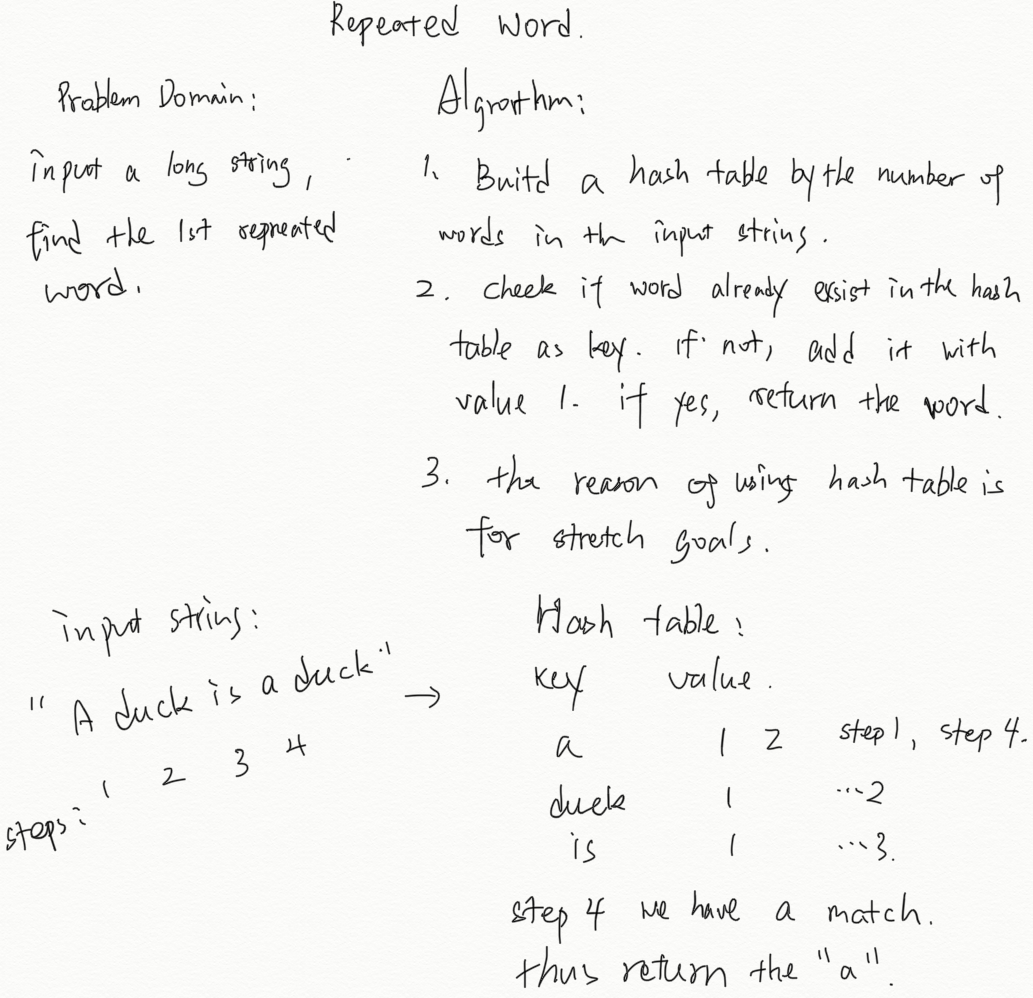 Repeated Word.
Problem Domain:
input a long string,
find the 1st repreated
word.
Algrorthm:
1. Build a hash table by the number of
words in th input string.
2. check if word already exsist in the hash
table as key. if not, add it with
value 1. if yes, return the word.
3. the reason of using hash table is
for stretch goals.
input string:
"A duck is a duck" →
steps: 1 2 3 4
Hash table:
key value.
a 1 2 step 1, step 4.
duck 1 ...2
is 1 ...3.
step 4 we have a match.
thus return the "a".